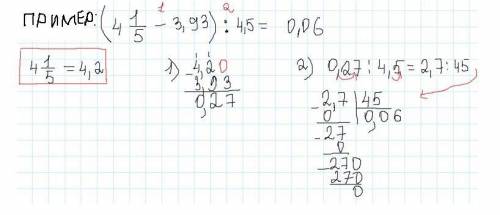 ПРИМЕР: (4 1/5 - 3,93) : 4,5 = 0,06
1 2
4 1/5 = 4,2
1) - 4,20
3,93
0,27
2) 0,27 : 4,5 = 2,7 : 45
- 2,7 | 45
0 | 0,06
- 27
0
- 270
270
0